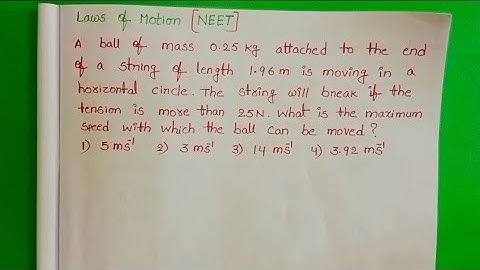 Laws of Motion [NEET]
A ball of mass 0.25 kg attached to the end
of a string of length 1.96 m is moving in a
horizontal circle. The string will break if the
tension is more than 25N. What is the maximum
speed with which the ball can be moved?
1) 5 ms⁻¹ 2) 3 ms⁻¹ 3) 14 ms⁻¹ 4) 3.92 ms⁻¹